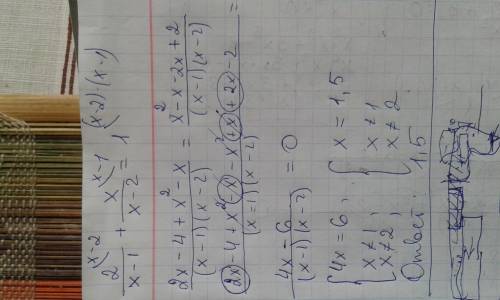 2/(x-1) (x-2 + x/(x-2) (x-1 = 1 (x-2)·(x-1)
(2x-4+x²-x)/((x-1)(x-2)) = (x²-x-2x+2)/((x-1)(x-2))
(2x-4+x²-x-x²+x+2x-2)/((x-1)(x-2)) =
(4x-6)/((x-1)(x-2)) = 0
{4x=6, {x=1,5
x≠1, x≠1
x≠2, x≠2
Ответ: 1,5